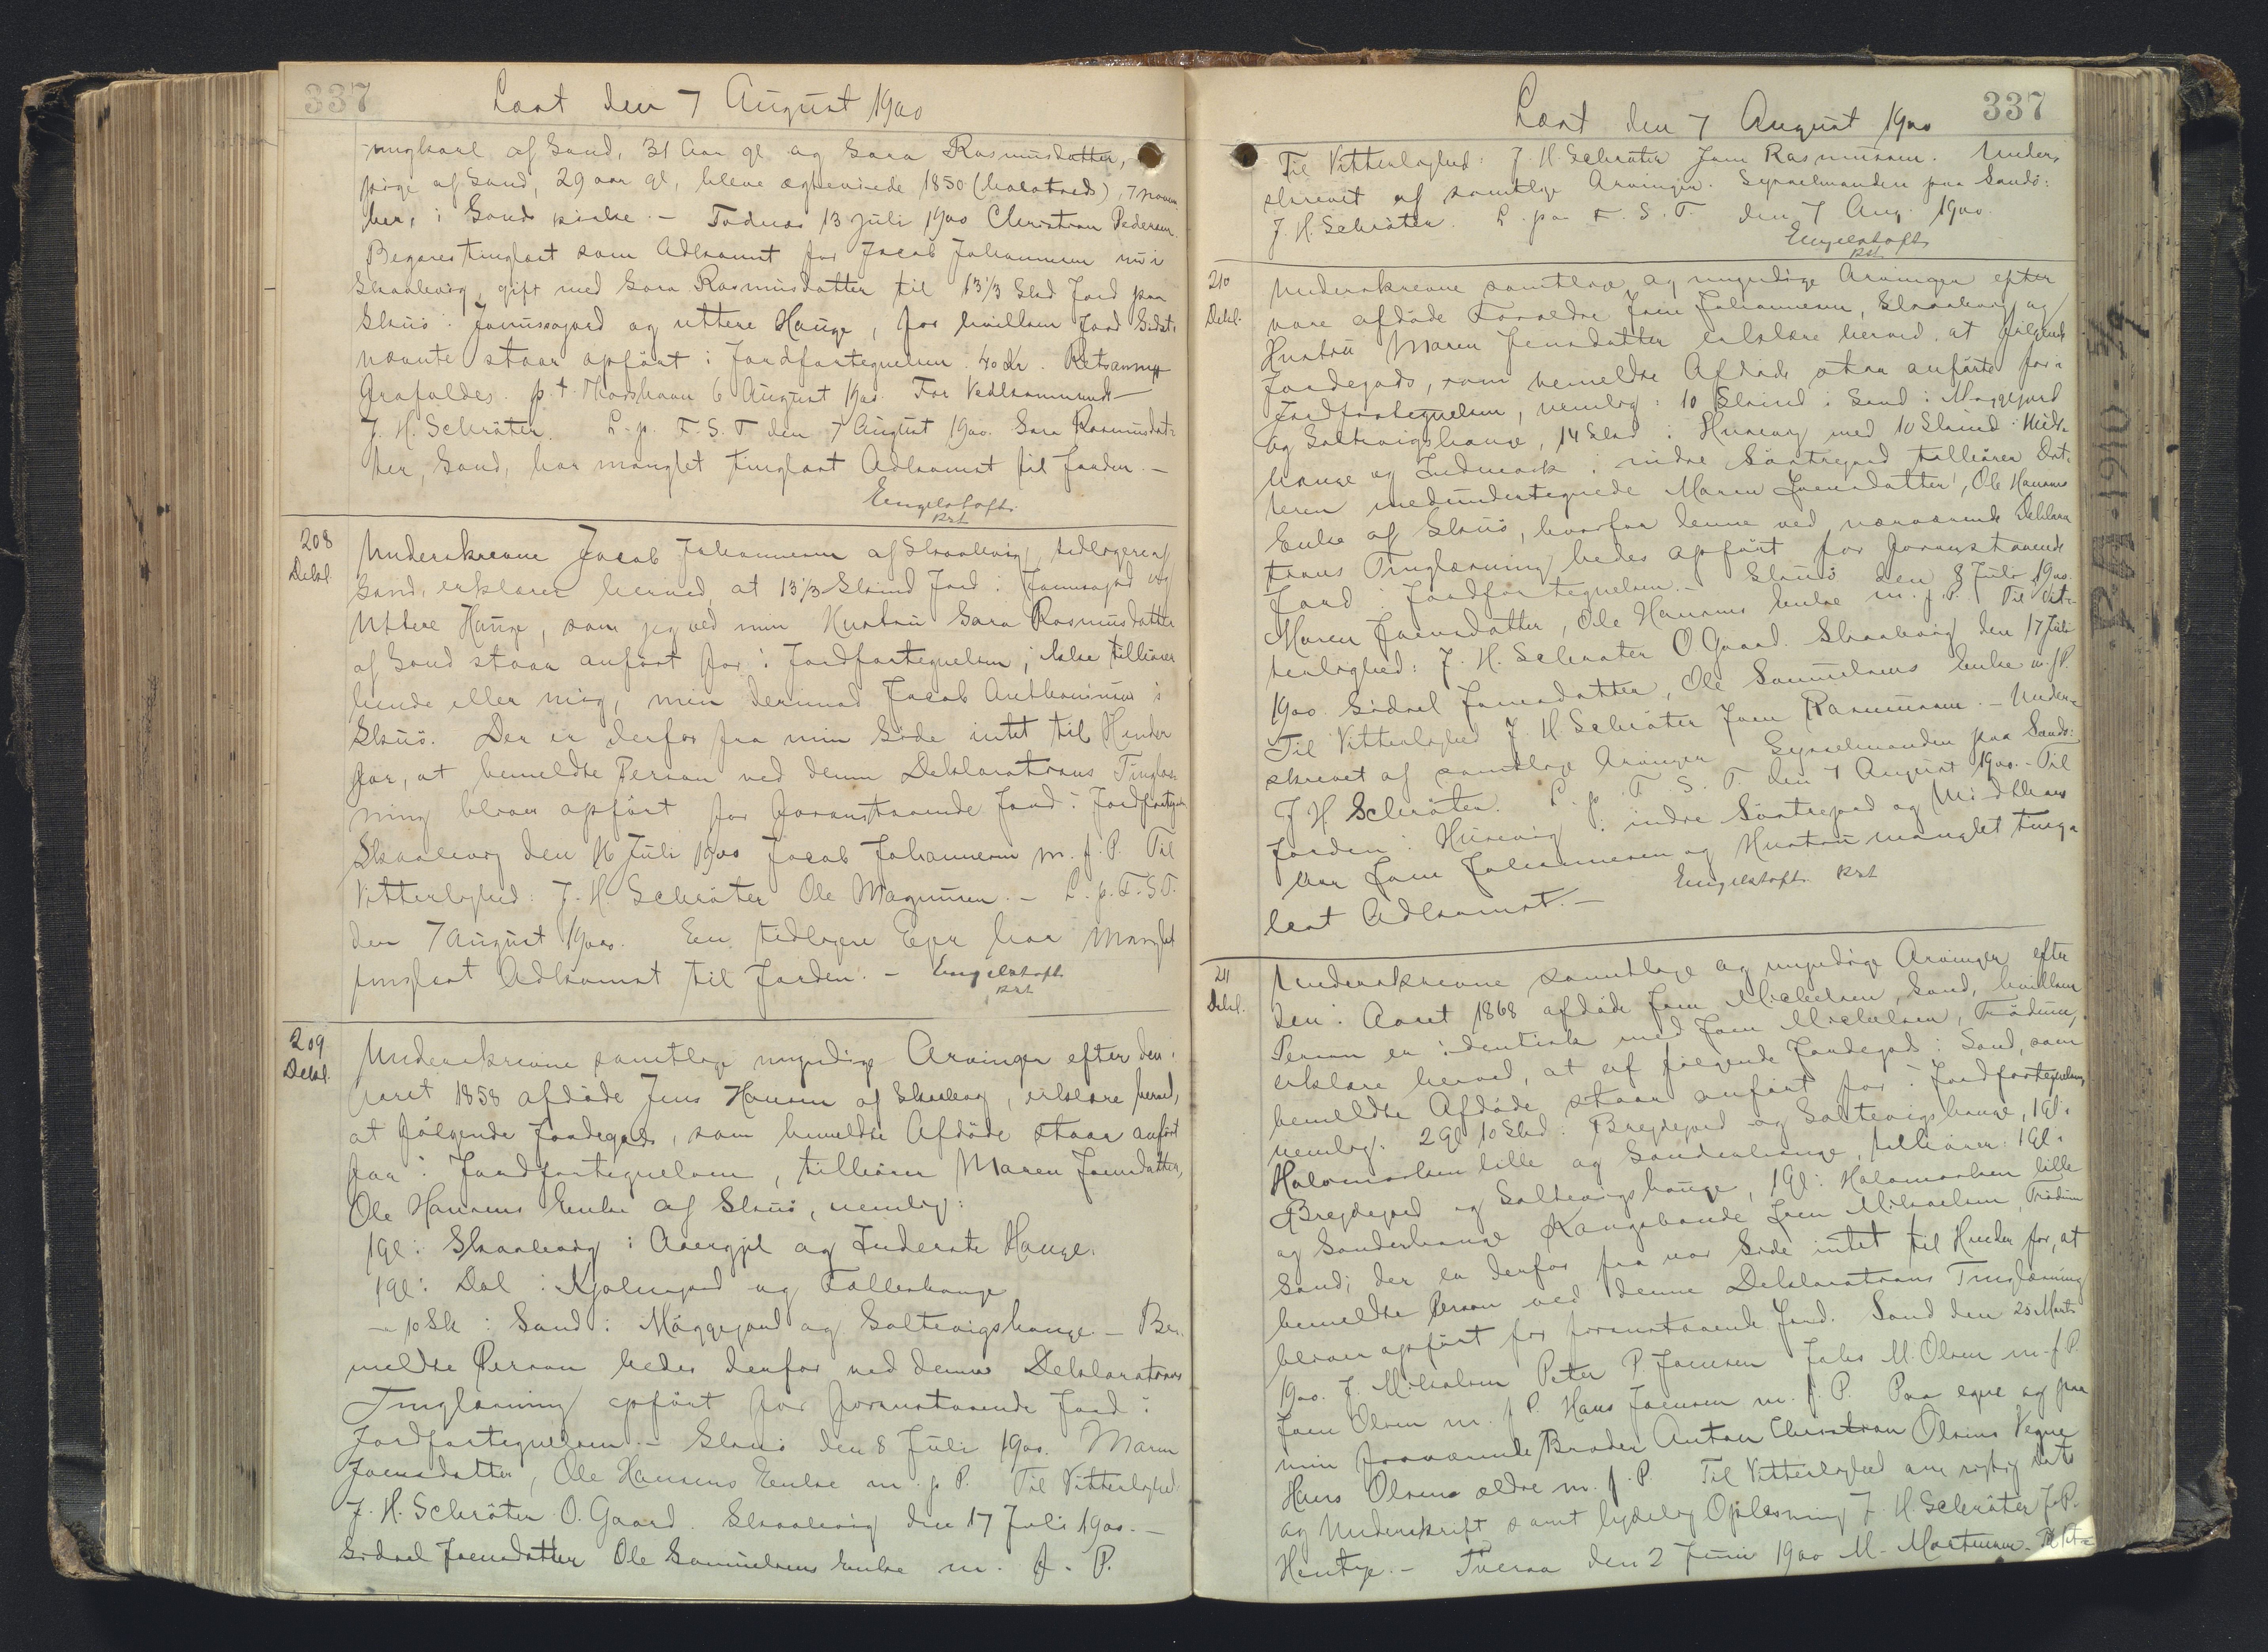 337
Læst den 7 August 1900
ungkarl af Sand, 31 Aar gl og Sara Rasmusdatter,
pige af Sand, 29 aar gl, bleve ægteviede 1850 (halvtreds), 7 Novem
ber, i Sands kirke. — 13 Juli 1900 Christian Pedersen.
Begæres tinglæst som Adkomst for Jacob Johannesen nu i
Skaalevig, gift med Sara Rasmusdatter til 13 1/3 Skd Jord paa
Skuø i og uttere Hauge, for hvilken Jord Sidst-
nævnte staar opført i Jordfortegnelsen. 40 Kr. Retsanmst
Grafaldes. p.t. Thorshavn 6 August 1900. For Vedkommende
J. H. Schrøter. L. p. F. S. T. den 7 August 1900. Sara Rasmusdat-
ter, Sand, har manglet tinglæst Adkomst til Jorden. —
Engelstoft
kst
208
Dekl.
Underskrevne Jacob Johannesen af Skaalevig, tidligere af
Sand, erklærer herved, at 13 1/3 Skind Jord i og
Uttere Hauge, som jeg ved min Hustru Sara Rasmusdatter
af Sand staar anført for i Jordfortegnelsen, ikke tilhører
hende eller mig, men derimod Jacob i
Skuø. Der er derfor fra min Side intet til Hinder
for, at bemeldte Person ved denne Deklarations Tinglæs-
ning bliver opført for foranstaaende Jord i Jordfortegn.
Skaalevig den 16 Juli 1900 Jacob Johannesen m. f. P. Til
Vitterlighed: J. H. Schrøter Ole Magnusen. — L. p. F. S. T.
den 7 August 1900. En tidligere Ejer har manglet
tinglæst Adkomst til Jorden. — Engelstoft
kst
209
Dekl.
Underskrevne samtlige myndige Arvinger efter den i
Aaret 1858 afdøde Jens Hansen af Skaalevig, erklære herved,
at følgende Jordegods, som bemeldte Afdøde staar anført
for i Jordfortegnelsen, tilhører Maren Joensdatter,
Ole Hansens Enke af Skuø, nemlig:
1 Gl i Skaalevig i og Inderste Hauge.
1 Gl i Dal i og
— 10 Sk i Sand i Møggegaard og Saltevigshauge. — Be-
meldte Person bedes derfor ved denne Deklarations
Tinglæsning opført for foranstaaende Jord i
Jordfortegnelsen. — Skuø den 8 Juli 1900. Maren
Joensdatter, Ole Hansens Enke m. f. P. Til Vitterlighed
J. H. Schrøter O. Gaard. Skaalevig den 17 Juli 1900. —
Sidsel Joensdatter Ole Samuelsens Enke m. f. P.
337
Læst den 7 August 1900
Til Vitterlighed: J. H. Schrøter Joen Rasmussen. Under-
skrevet af samtlige Arvinger. Sysselmanden paa Sandø:
J. H. Schrøter. L. p. F. S. T. den 7 Aug. 1900.
Engelstoft
kst
210
Dekl.
Underskrevne samtlige og myndige Arvinger efter
vore afdøde Forældre Joen Johannesen, Skaalevig og
Hustru Maren Jensdatter erklære herved, at følgende
Jordegods, som bemeldte Afdøde staar anførte for i
Jordfortegnelsen, nemlig: 10 Skind i Sand i Møggegaard
og Saltevigshauge, 14 Skd i Husevig med 10 Skind i Midt-
hauge og Indmark i indre tilhører Dat-
teren medundertegnede Maren Joensdatter, Ole Hansens
Enke af Skuø, hvorfor denne ved nærværende Deklara
tions Tinglæsning bedes opført for foranstaaende
Jord i Jordfortegnelsen. — Skuø den 8 Juli 1900.
Maren Joensdatter, Ole Hansens Enke m. f. P. Til Vit-
terlighed: J. H. Schrøter O. Gaard. Skaalevig den 17 Juli
1900 Sidsel Joensdatter, Ole Samuelsens Enke m. f. P.
Til Vitterlighed J. H. Schrøter Joen Rasmussen. — Under-
skrevet af samtlige Arvinger Sysselmanden paa Sandø:
J H Schrøter. L. p. F. S. T den 7 August 1900. — Til
Jorden i Husevig i indre og Midthaus
har Joen Johannesen og Hustru manglet ting-
læst Adkomst. — Engelstoft kst
211
Dekl.
Underskrevne samtlige og myndige Arvinger efter
den i Aaret 1868 afdøde Joen Michelsen, Sand, hvilken
Person er identisk med Joen Michelsen, Trødum,
erklære herved, at af følgende Jordegods i Sand, som
bemeldte Afdøde staar anført for i Jordfortegnelsen,
nemlig: 2 Gl 10 Skd i Brejdegaard og Saltevigshauge, 1 Gl i
lille og Sanderhauge, tilhører: 1 Gl i
Brejdegaard og Saltevigshauge, 1 Gl i lille
og Sanderhauge Kongsbonde Joen Mikkelsen, Trødum
Sand; der er derfor fra vor Side intet til Hinder for, at
bemeldte Person ved denne Deklarations Tinglæsning
bliver opført for foranstaaende Jord. Sand den 25 Marts
1900. J. Mikkelsen Peter P. Joensen M. Olsen m. f. P
Joen Olsen m. f. P. Hans Joensen m. f. P. Paa egne og paa
min fraværende Broder Anton Christian Olsens Vegne
Hans Olsen ældre m. f. P. Til Vitterlighed om rigtig Dato
og Underskrift samt lydelig Oplæsning J. H. Schrøter J. P.
Hentze. — Tveraa den 2 Juni 1900 M. Mortensen. Til Vit-